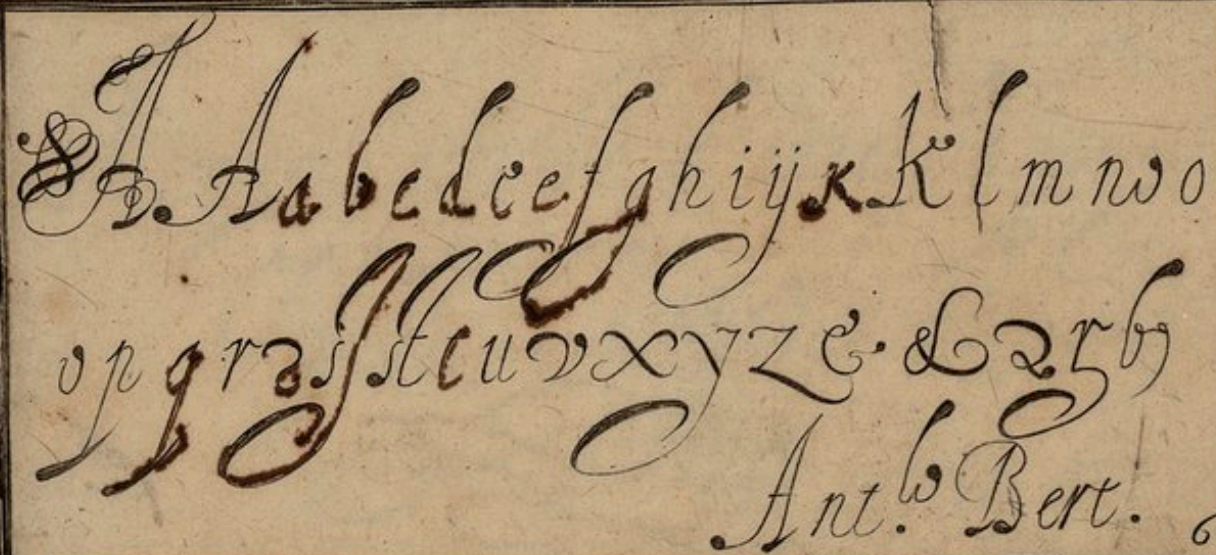 A. A a b c d e e f g h i ij k K l m n v o
v p q r 2 s ſ st t u v x y z e & 2
Ant.º Bert.